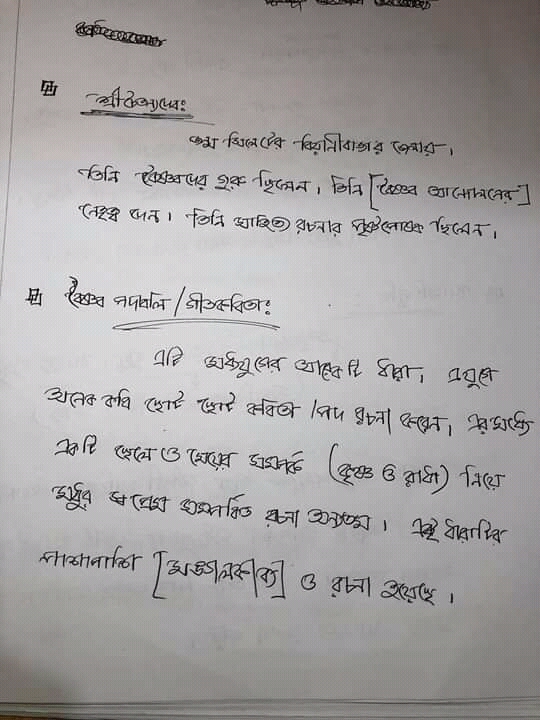 শ্রীচৈতন্যদেবঃ
জন্ম সিলেটের বিয়ানীবাজার জেলার।
তিনি বৈষ্ণবদের গুরু ছিলেন। তিনি [বৈষ্ণব আন্দোলনের]
নেতৃত্ব দেন। তিনি সাহিত্য রচনার পৃষ্ঠপোষক ছিলেন।
বৈষ্ণব পদাবলি/গীতিকবিতাঃ
এটি মধ্যযুগের আরেকটি ধারা। এযুগে
অনেক কবি ছোট ছোট কবিতা/পদ রচনা করেন। এরমধ্যে
একটি ছেলে ও মেয়ের সম্পর্ক (কৃষ্ণ ও রাধা) নিয়ে
মধুর প্রেম সম্পর্কিত রচনা অন্যতম। এই ধারাটির
পাশাপাশি [মঙ্গলকাব্য] ও রচনা হয়েছে।